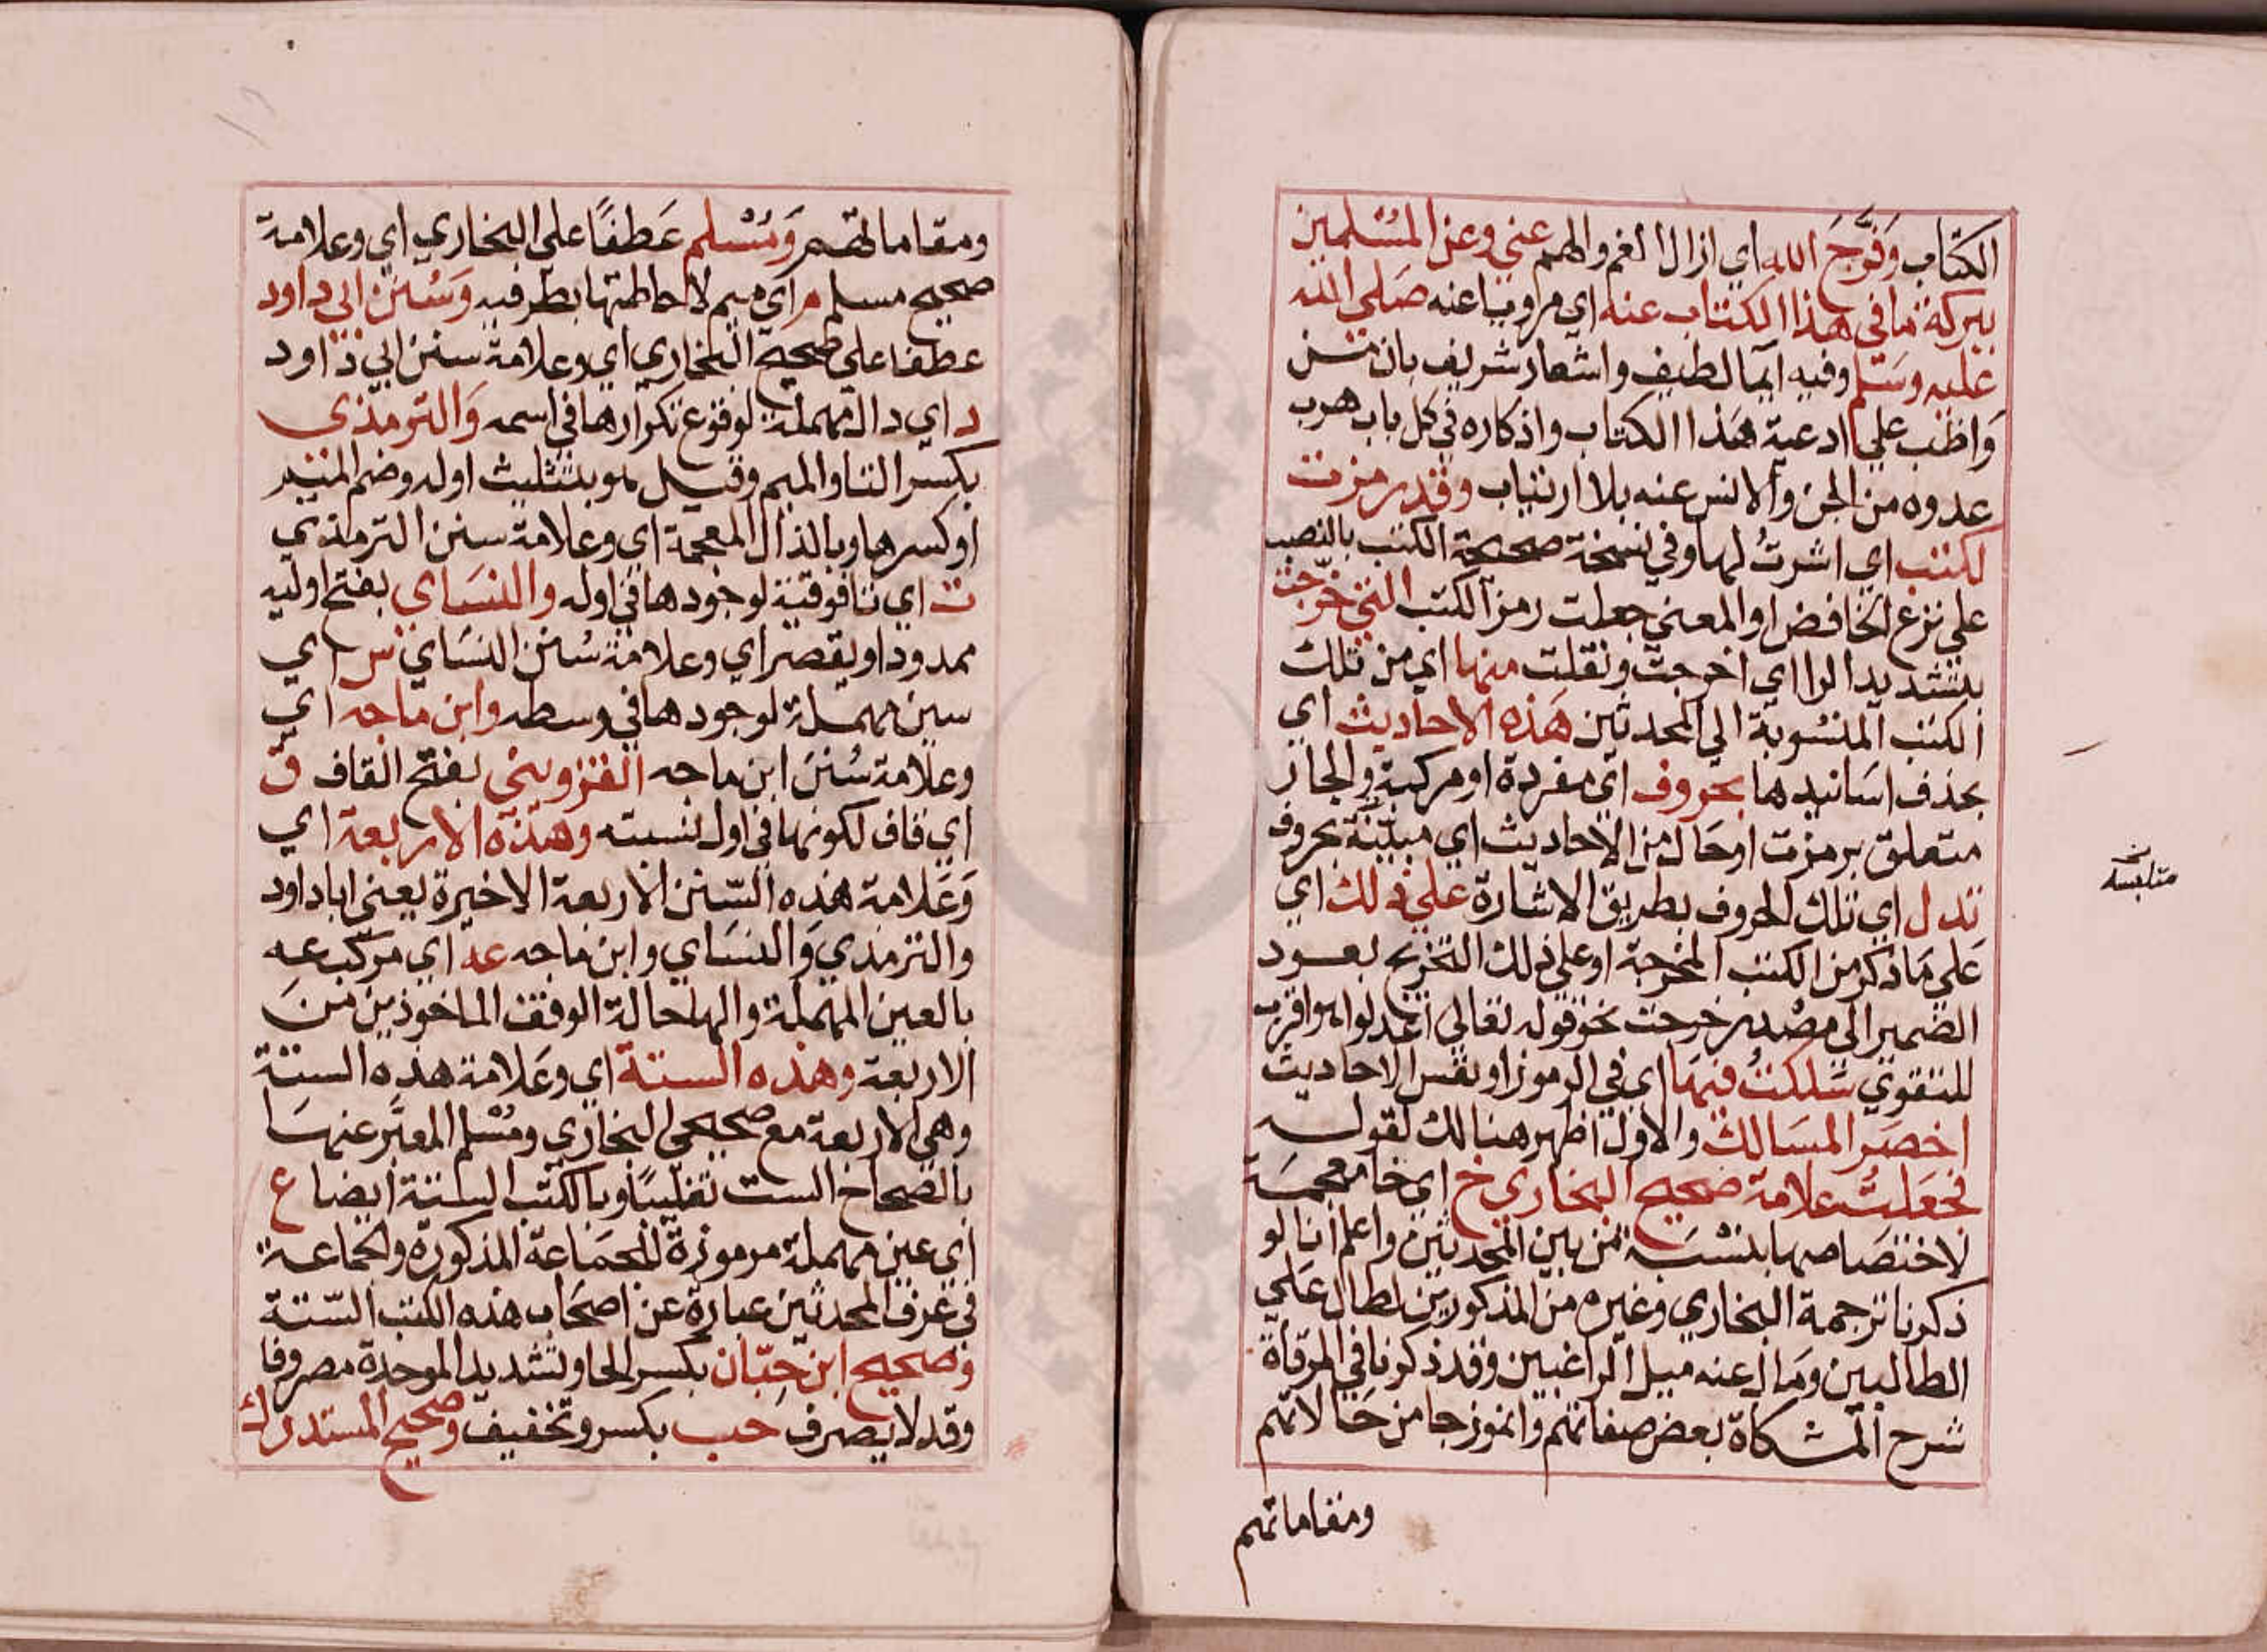 الكتاب وَفَرَّجَ الله اي ازال الغم والهم عني وعن المسْلمين
ببركة ما في هذا الكتاب عنه اي مرويا عنه صَلى الله
عليه وسَلم وفيه ايما لطيف واشعار شريف بان من
وَاظب علي ادعية هذا الكتاب واذكاره في كل باب هرب
عدوه من الجن والانس عنه بلا ارتياب وقد رمزت
لكتب اي اشرتُ لها وفي نسخة صحيحة الكتب بالنصب
علي نزع الخافض او المعني جعلت رمز الكتب التي خرّجت
بتشديد الرا اي اخرجت ونقلت منها اي من تلك
الكتب المنسُوبة الي المحدثين هَذه الاحاديث اي
بحذف اسَانيدها بحروف اي مفردة او مركبة والجار
متعلق برمزت او حَال من الاحاديث اي مبيّنة بحروف
تدل اي تلك الحروف بطريق الاشارة علي ذلك اي
عَلي مَا ذكر من الكتب المخرجة او علي ذلك التخريج بعود
الضمير الي مصْدر خرجت نحو قوله تعالي اعدلوا هو اقرب
للتقوي سَلكتُ فيهَا اي في الرموز او نفس الاحاديث
اخصَر المسَالك والاول اظهر هنا لك لقوله
فجعَلتُ علامة صحيح البخاري خ اي خا معجمَة
لاختصَاصها بنسْبَته من بين المحدثين واعلم انا لو
ذكرنا ترجمة البخاري وغيره من المذكورين لطال عَلي
الطالبين ومَال عنه ميل الراغبين وقد ذكرنا في المرقاة
شرح المشكاة بعض صفاتهم وانموزجا من حَالاتهم
ومقاماتهم
متلبسه
ومقاماتهم وَمُسْلم عَطفًا علي البخاري اي وعلامة
صحيح مسلم م اي ميم لاحاطتها بطرفيه وَسُنن ابي داود
عطفا علي صحيح البخاري اي وعلامة سنن ابي داود
د اي دال مهملة لوقوع تكرارها في اسمه وَالترمذي
بكسر التا والميم وقيل بتثليث اوله وضم الميم
او كسرها وبالذال المعجمة اي وعلامة سنن الترمذي
ت اي تا فوقية لوجودها في اوله والنسَاي بفتح اوليه
ممدودا ويقصر اي وعلامة سُنن النسَاي س اي
سين مهملة لوجودها في وسطه وابن ماجه اي
وعلامة سُنن ابن ماجه القزويني بفتح القاف ق
اي قاف لكونها في اول نسبته وهذه الاربعة اي
وَعَلامة هذه السّنن الاربعة الاخيرة يعني ابا داود
والترمذي وَالنسَاي وابن ماجه عه اي مركّب عه
بالعين المهملة والها حالة الوقف الماخوذين منَ
الاربعة وهذه الستة اي وعَلامة هذه الستة
وهي الاربعة مع صحيحي البخاري ومُسْلم المعبَّر عنهما
بالصحاح الست تغليبًا وبالكتب الستة ايضا ع
اي عين مهملة مرموزة للجمَاعة المذكورة والجماعة
في عرف المحدثين عبارة عن اصحَاب هذه الكتب السّتة
وصحيح ابن حِبّان بكسر الحا وتشديد الموحدة مصروفا
وقد لا يصرف حب بكسر وتخفيف وصحيح المستدرك